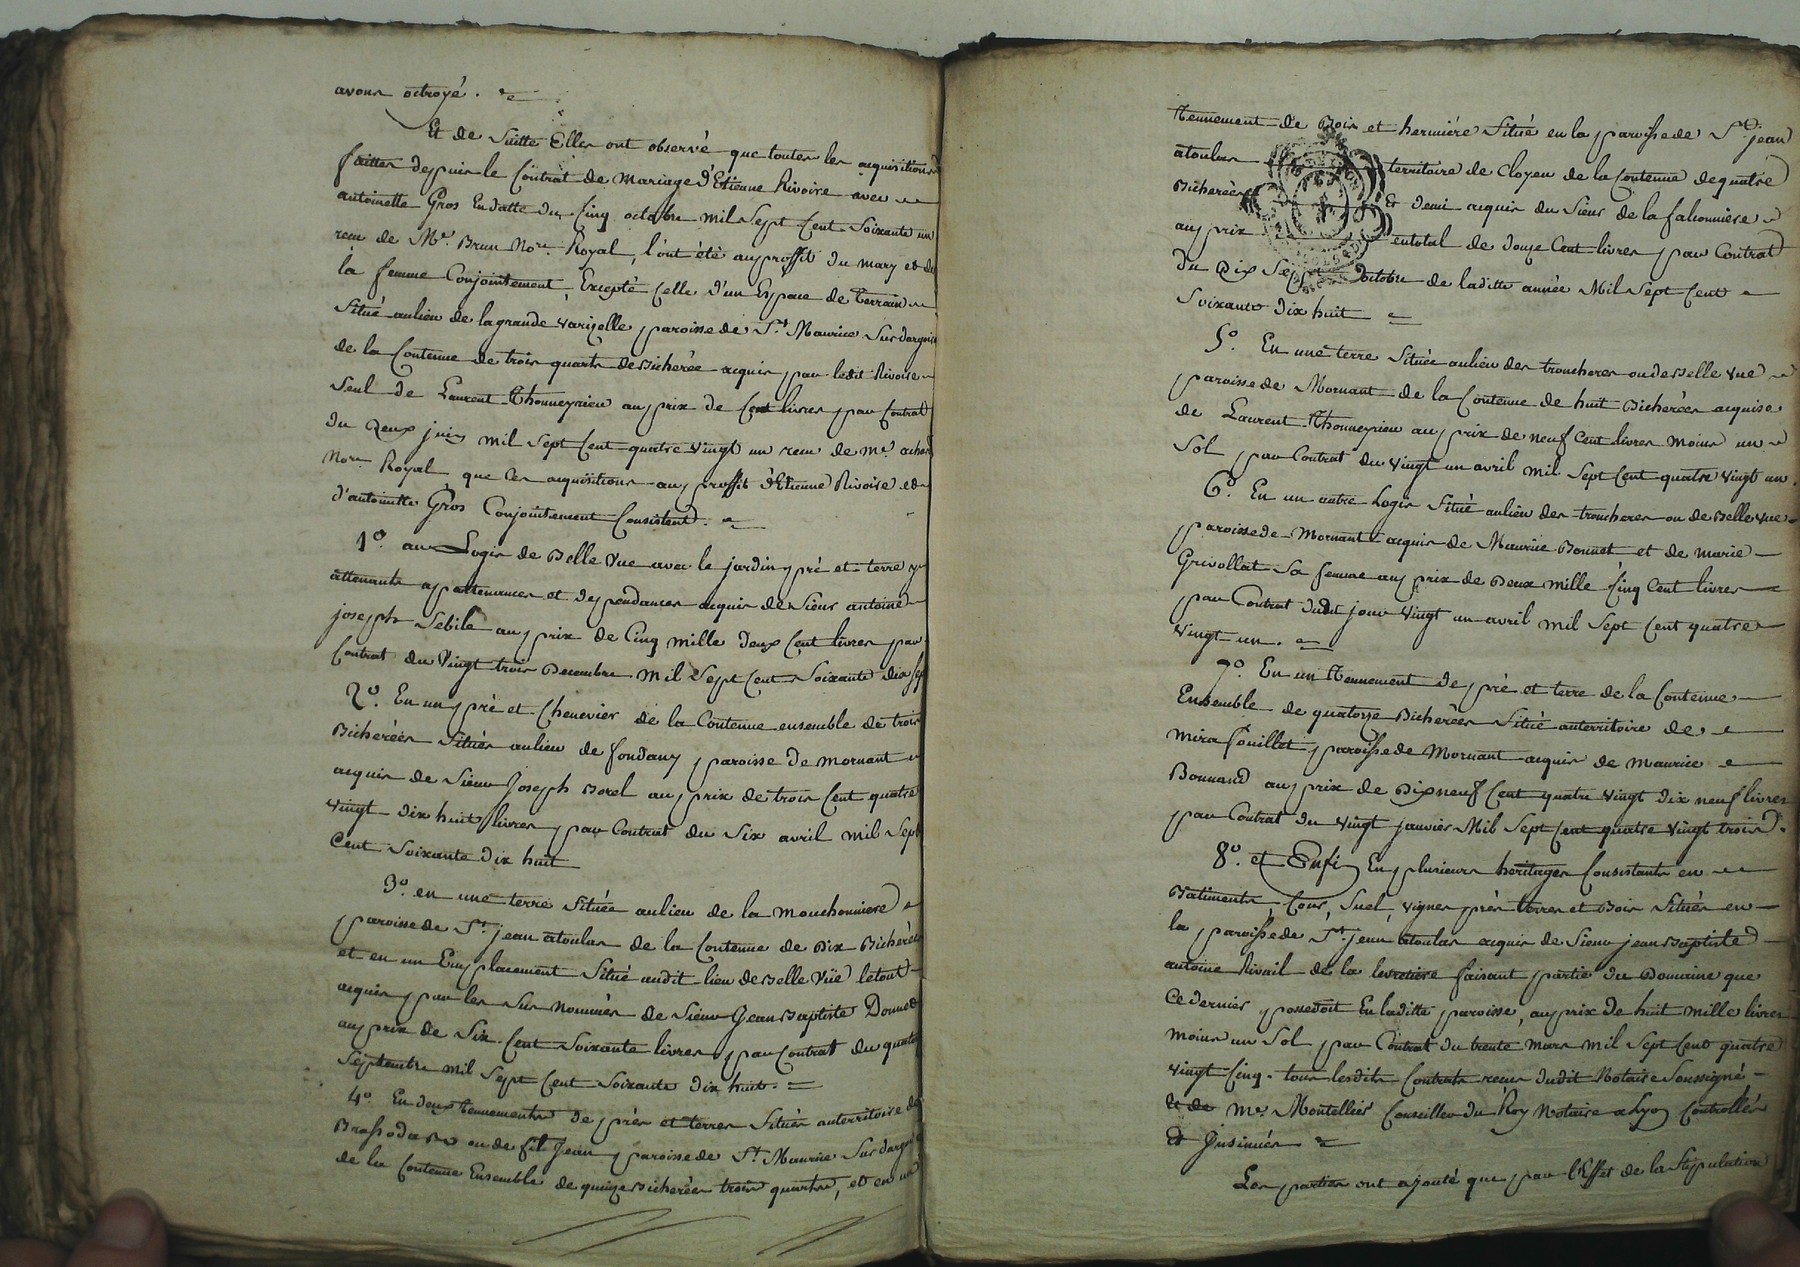 avons octroyé.
Et de Suitte Elles ont observé que toutes les acquisitions
faittes depuis le Contrat de Mariage d'Etienne Rivoire avec
antoinette Gros En datte du Cinq octobre mil Sept Cent Soixante un
recu de Me. Brun Nore. Royal, l'ont été au proffit du mary et de
la femme Conjointement, Excepté Celle d'un Espace de terrain
Situé au lieu de la grande varizelle paroisse de St. Maurice Sur dargoire
de la Contenue de trois quarts de Bicherée acquis par ledit Rivoire
Seul de Laurent Thonneyrieu au prix de Cent livres par Contrat
du deux juin mil Sept Cent quatre vingt un recu de me.
Nore. Royal que les acquisitions au proffit d'Etienne Rivoire et
d'antoinette Gros Conjointement Consistent.
1o. au Logis de Belle Vue avec le jardin pré et terre y
attenants appartenances et dependances acquis de Sieur antoine
joseph Sebile au prix de Cinq mille deux Cent livres par
Contrat du Vingt trois Decembre Mil Sept Cent Soixante dix Sept
2o. En un pré et Chenevier de la Contenue ensemble de trois
Bicherées Situés au lieu de fondany paroisse de Mornant
acquis de Sieur Joseph Borel au prix de trois Cent quatre
vingt dix huit livres par Contrat du Six avril mil Sept
Cent Soixante dix huit
3o. en une terre Située au lieu de la mouchonniere
paroisse de St. jean atoulas de la Contenue de Dix Bicherées
et en un Emplacement Situé audit lieu de Belle Vüe le tout
acquis par les Sus Nommés de Sieur Jean Baptiste Donnet
au prix de Six Cent Soixante livres par Contrat du quatre
Septembre mil Sept Cent Soixante dix huit.
4o. En deux tennements de prés et terres Situés au territoire de
ou de fil Jean paroisse de St. Maurice Sur dargoire
de la Contenue Ensemble de quinze Bicherées trois quarts, et en un
tennement de Bois et hermiére Situé en la paroisse de St. jean
atoulas territoire de Cloyeu de la Contenue de quatre
Bicherées Et demi acquis du Sieur de la falconniere
au prix en total de douze Cent livres par Contrat
du Dix Sept octobre de laditte année Mil Sept Cent
Soixante dix huit
5o. En une terre Située au lieu des troncheres ou de Belle vue
paroisse de Mornant de la Contenue de huit Bicherées acquise
de Laurent Thonneyrieu au prix de neuf Cent livres moins un
Sol par Contrat du vingt un avril mil Sept Cent quatre vingt un.
6o. En un autre Logis Situé au lieu des troncheres ou de Belle vue
paroisse de Mornant acquis de Maurice Bonnet et de marie
Grivollat Sa femme au prix de Deux mille Cinq Cent livres
par Contrat dudit jour vingt un avril mil Sept Cent quatre
vingt un.
7o. En un tennement de pré et terre de la Contenue
Ensemble de quatorze Bicherées Situé au territoire de
mira souillet paroisse de Mornant acquis de Maurice
Bonnand au prix de Dix neuf Cent quatre vingt dix neuf livres
par Contrat du vingt janvier Mil Sept Cent quatre vingt trois.
8o. et Enfin En plusieurs heritages Consistants en
Batiments, Cour, Suel, vignes prés terres et Bois Situés en
la paroisse de St. jean atoulas acquis de Sieur jean Baptiste
antoine Rivail de la levretiere faisant partie du Domaine que
Ce dernier possedoit En laditte paroisse, au prix de huit mille livres
moins un Sol par Contrat du trente mars mil Sept Cent quatre
vingt Cinq. tous lesdits Contrats recus dudit Notaire Soussigné
et de Me. Montellier Conseiller du Roy Notaire a Lyon Controllés
Et Insinués
Les parties ont ajouté que par l'Effet de la Stipulation